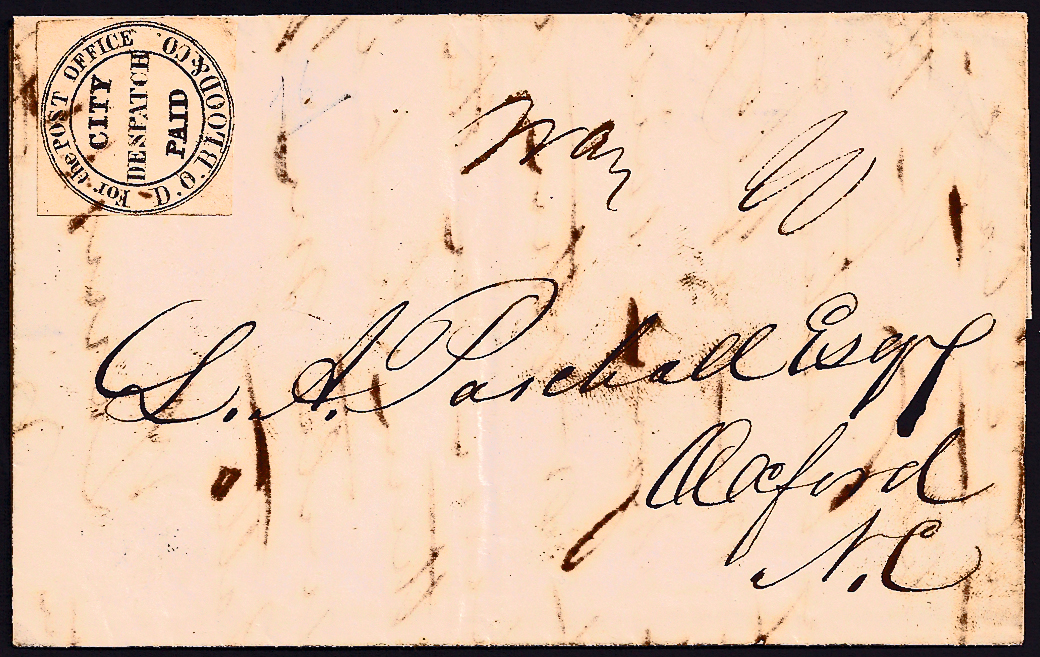 For the POST OFFICE
D.O.BLOOD&CO.
CITY
DESPATCH
PAID
Way
L. A. Paschall Esqr
Oxford
N.C